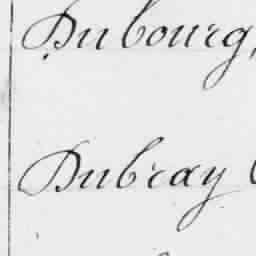 Dubourg,
Dubray